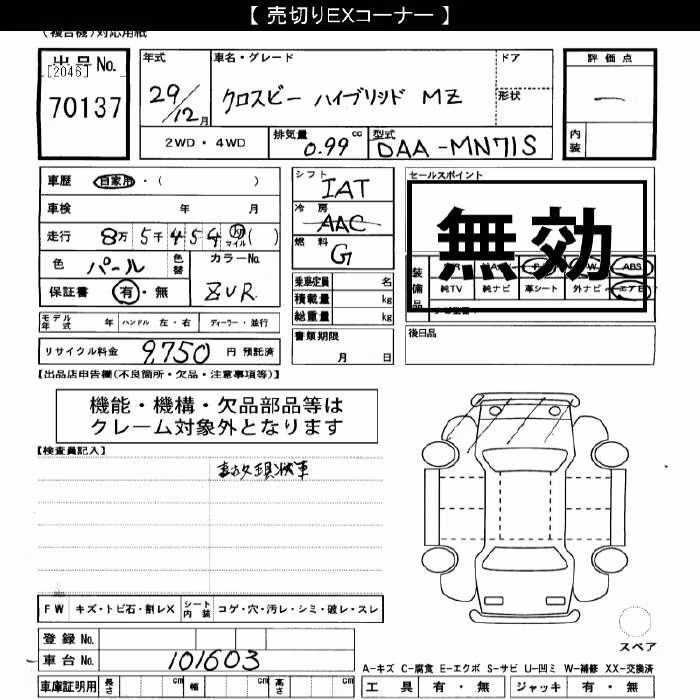 【 売切りEXコーナー 】
(複合機)対応用紙
出品No. 年式 車名・グレード ドア 評価点
[2046]
70137 29/12月 クロスビー ハイブリッド MZ 形状 —
2WD・4WD 排気量 0.99 cc 型式 DAA-MN71S 内装
車歴 自家用・( ) シフト IAT セールスポイント
車検 年 月 冷房 AAC
無効
走行 8万5千454 km マイル ( ) 燃料 G
色 パール 色替 カラーNo. 装備品 ABS
保証書 有・無 ZVR 乗車定員 名 純TV 純ナビ 革シート 外ナビ エアB
積載量 kg
モデル年式 年 ハンドル 左・右 ディーラー・並行 総重量 kg 後日品
リサイクル料金 9,750 円 預託済 書類期限 月 日
【出品店申告欄(不良箇所・欠品・注意事項等)】
機能・機構・欠品部品等は
クレーム対象外となります
【検査員記入】
事故現状車
FW キズ・トビ石・割レX シート内装 コゲ・穴・汚レ・シミ・破レ・スレ
登録No.
スペア
車台No. 101603
A-キズ C-腐食 E-エクボ S-サビ U-凹ミ W-補修 XX-交換済
車庫証明用 長さ cm 幅 cm 高さ cm 工具 有・無 ジャッキ 有・無